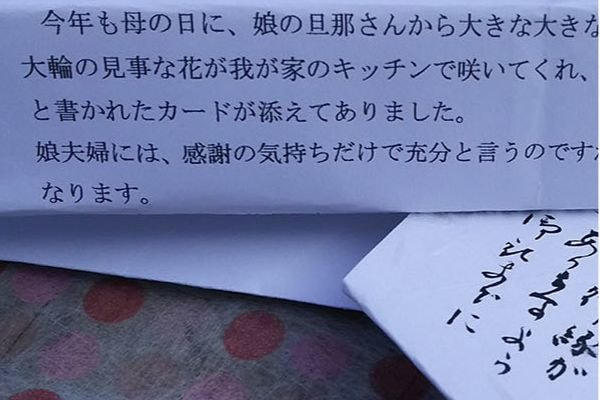 今年も母の日に、娘の旦那さんから大きな大きな
大輪の見事な花が我が家のキッチンで咲いてくれ、
と書かれたカードが添えてありました。
娘夫婦には、感謝の気持ちだけで充分と言うのですが
なります。
縁が
ありますよう